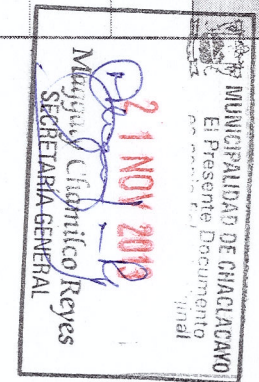 MUNICIPALIDAD DE CHACLACAYO
El Presente Documento
2 1 NOV 2013
Chamilco Reyes
SECRETARIA GENERAL